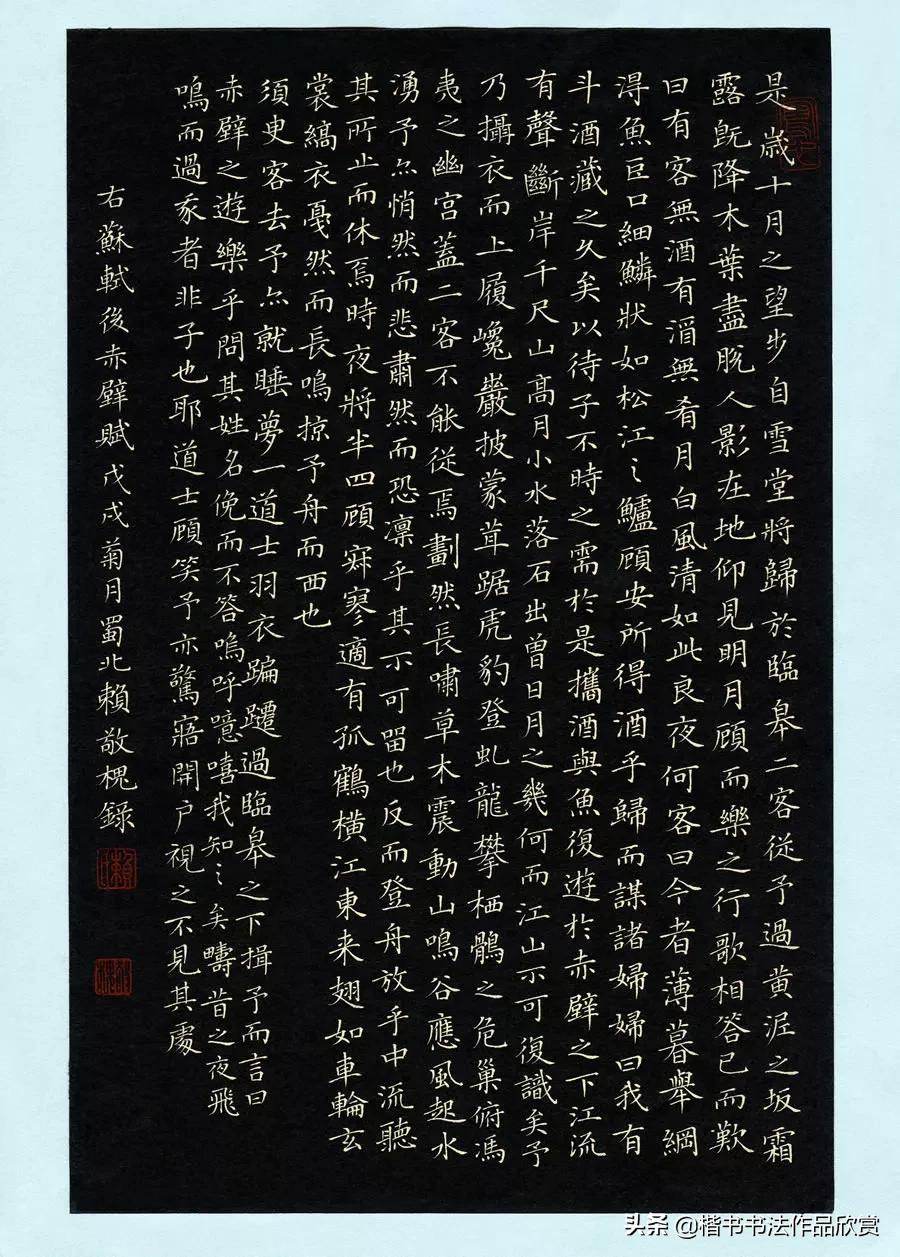 是歲十月之望步自雪堂將歸於臨皋二客從予過黄泥之坂霜
露既降木葉盡脫人影在地仰見明月顧而樂之行歌相答已而歎
曰有客無酒有酒無肴月白風清如此良夜何客曰今者薄暮舉網
得魚巨口細鱗狀如松江之鱸顧安所得酒乎歸而謀諸婦婦曰我有
斗酒藏之久矣以待子不時之需於是攜酒與魚復遊於赤壁之下江流
有聲斷岸千尺山高月小水落石出曾日月之幾何而江山不可復識矣予
乃攝衣而上履巉巖披蒙茸踞虎豹登虬龍攀栖鶻之危巢俯馮
夷之幽宫蓋二客不能從焉劃然長嘯草木震動山鳴谷應風起水
湧予亦悄然而悲肅然而恐凛乎其不可留也反而登舟放乎中流聽
其所止而休焉時夜將半四顧寂寥適有孤鶴横江東来翅如車輪玄
裳縞衣戛然而長鳴掠予舟而西也
須臾客去予亦就睡夢一道士羽衣蹁躚過臨皋之下揖予而言曰
赤壁之遊樂乎問其姓名俛而不答嗚呼噫嘻我知之矣疇昔之夜飛
鳴而過我者非子也耶道士顧笑予亦驚寤開户視之不見其處
右蘇軾後赤壁賦戊戌菊月蜀北賴敬槐錄
头条 @楷书书法作品欣赏